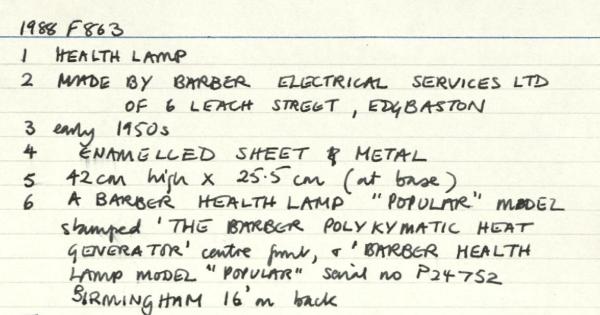 1988 F863
1 HEALTH LAMP
2 MADE BY BARBER ELECTRICAL SERVICES LTD
OF 6 LEACH STREET, EDGBASTON
3 early 1950s
4 ENAMELLED SHEET METAL
5 42cm high X 25.5 cm (at base)
6 A BARBER HEALTH LAMP "POPULAR" MODEL
stamped 'THE BARBER POLYKYMATIC HEAT
GENERATOR' centre front, & 'BARBER HEALTH
LAMP MODEL "POPULAR" serial no P24752
BIRMINGHAM 16' on back